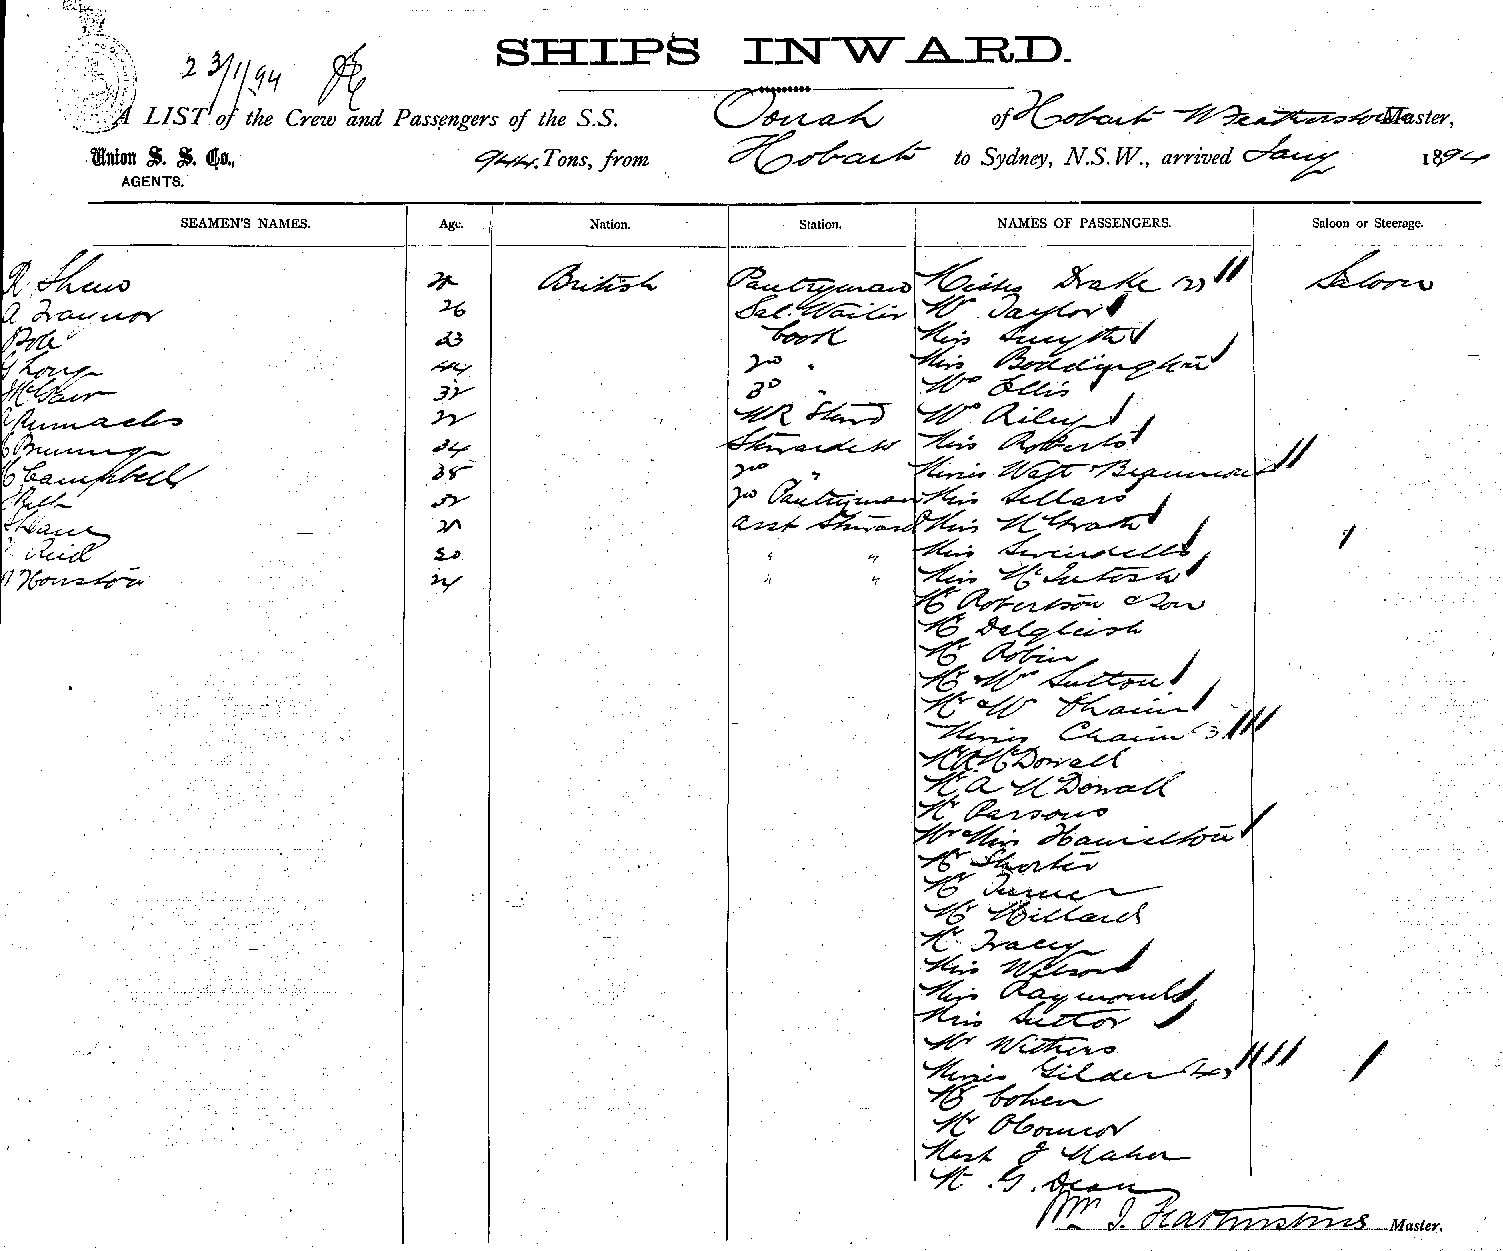 SHIPS INWARD.
23/1/94
A LIST of the Crew and Passengers of the S.S. Oonah of Hobart Master,
Union S. S. Co., 944 Tons, from Hobart to Sydney, N.S.W., arrived Jany 1894
AGENTS.
SEAMEN'S NAMES. Age. Nation. Station. NAMES OF PASSENGERS. Saloon or Steerage.
R. Shaw British Pantryman Misses Drake (2) Saloon
A Traynor 26 Sal. Waiter Mrs Taylor
23 Cook Miss Smythe
G Long 44 2nd " Miss Boddington
32 3rd " Mrs Ellis
22 Mrs Riley
34 Stewardess Miss Roberts
C Campbell 35 2nd " Misses Beaumont
32 2nd Pantryman Miss Sellars
asst Steward Miss McGrath
Reid 20 " " Miss Swindells
Houston 24 " " Miss McIntosh
Mr Robertson & Son
Mr Dalgleish
Mr Robin
Mr & Mrs Sutton
Mr & Mrs Chaim
Misses Chaim (3)
Mr McDowall
Mr A McDowall
Mr Parsons
Mr & Miss Hamilton
Mr Shorter
Mr Turner
Mr Millard
Mr Tracey
Miss Watson
Miss Raymond
Miss Suttor
Mr Withers
Misses Gilder (4)
Mr Cohen
Mr O'Connor
Mast J Maher
Mr G. Dean
Master.